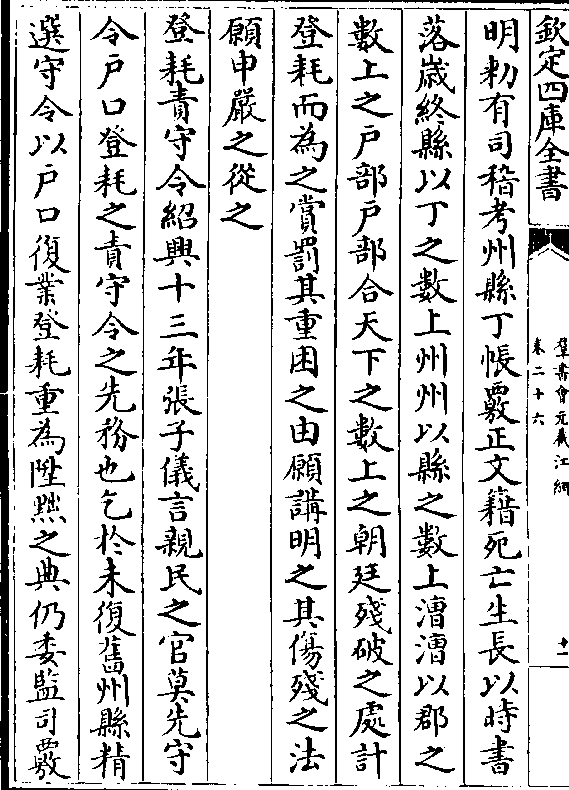 欽定四庫全書
羣書會元截江網
卷二十六
十一
明勑有司稽考州縣丁帳覈正文籍死亡生長以時書
落歲終縣以丁之數上州州以縣之數上漕漕以郡之
數上之戶部戶部合天下之數上之朝廷殘破之處計
登耗而為之賞罰其重困之由願講明之其傷殘之法
願申嚴之從之
登耗責守令紹興十三年張子儀言親民之官莫先守
令戶口登耗之責守令之先務也乞於未復舊州縣精
選守令以戶口復業登耗重為陞黜之典仍委監司覈